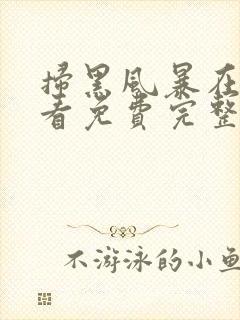 掃黑风暴在
看免费完整
不游泳的小鱼